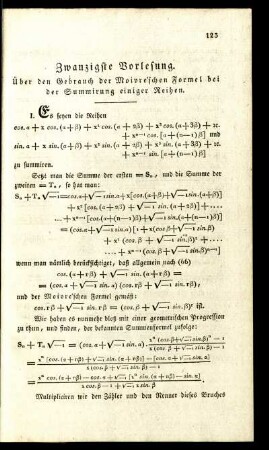 125
Zwanzigste Vorlesung.
Über den Gebrauch der Moivre'schen Formel bei
der Summirung einiger Reihen.
I. Es seyen die Reihen
cos. α + x cos. (α + β) + x² cos. (α + 2β) + x³ cos. (α + 3β) + ꝛc.
+ xⁿ⁻¹ cos. [α + (n−1) β] und
sin. α + x sin. (α + β) + x² sin. (α + 2β) + x³ sin. (α + 3β) + ꝛc.
+ xⁿ⁻¹ sin. [α + (n−1) β]
zu summiren.
Setzt man die Summe der ersten = Sₙ, und die Summe der
zweiten = Tₙ, so hat man:
Sₙ + Tₙ √−1 = cos. α + √−1 sin. α + x [cos. (α+β) + √−1 sin. (α+β)]
+ x² [cos. (α + 2β) + √−1 sin. (α + 2β)] + ....
... + xⁿ⁻¹ [cos. (α+(n−1)β) + √−1 sin. (α+(n−1)β)]
= (cos. α + √−1 sin. α) [1 + x (cos. β + √−1 sin. β)
+ x² (cos. β + √−1 sin. β)² + ....
... + xⁿ⁻¹ (cos. β + √−1 sin. β)ⁿ⁻¹]
wenn man nämlich berücksichtiget, daß allgemein nach (66)
cos. (α + rβ) + √−1 sin. (α + rβ) =
= (cos. α + √−1 sin. α) (cos. rβ + √−1 sin. rβ),
und der Moivre'schen Formel gemäß:
cos. rβ + √−1 sin. rβ = (cos. β + √−1 sin. β)ʳ ist.
Wir haben es nunmehr bloß mit einer geometrischen Progression
zu thun, und finden, der bekannten Summenformel zufolge:
Sₙ + Tₙ √−1 = (cos. α + √−1 sin. α) . xⁿ (cos. β + √−1 sin. β)ⁿ − 1 / x (cos. β + √−1 sin. β) − 1
Multipliciren wir den Zähler und den Nenner dieses Bruches